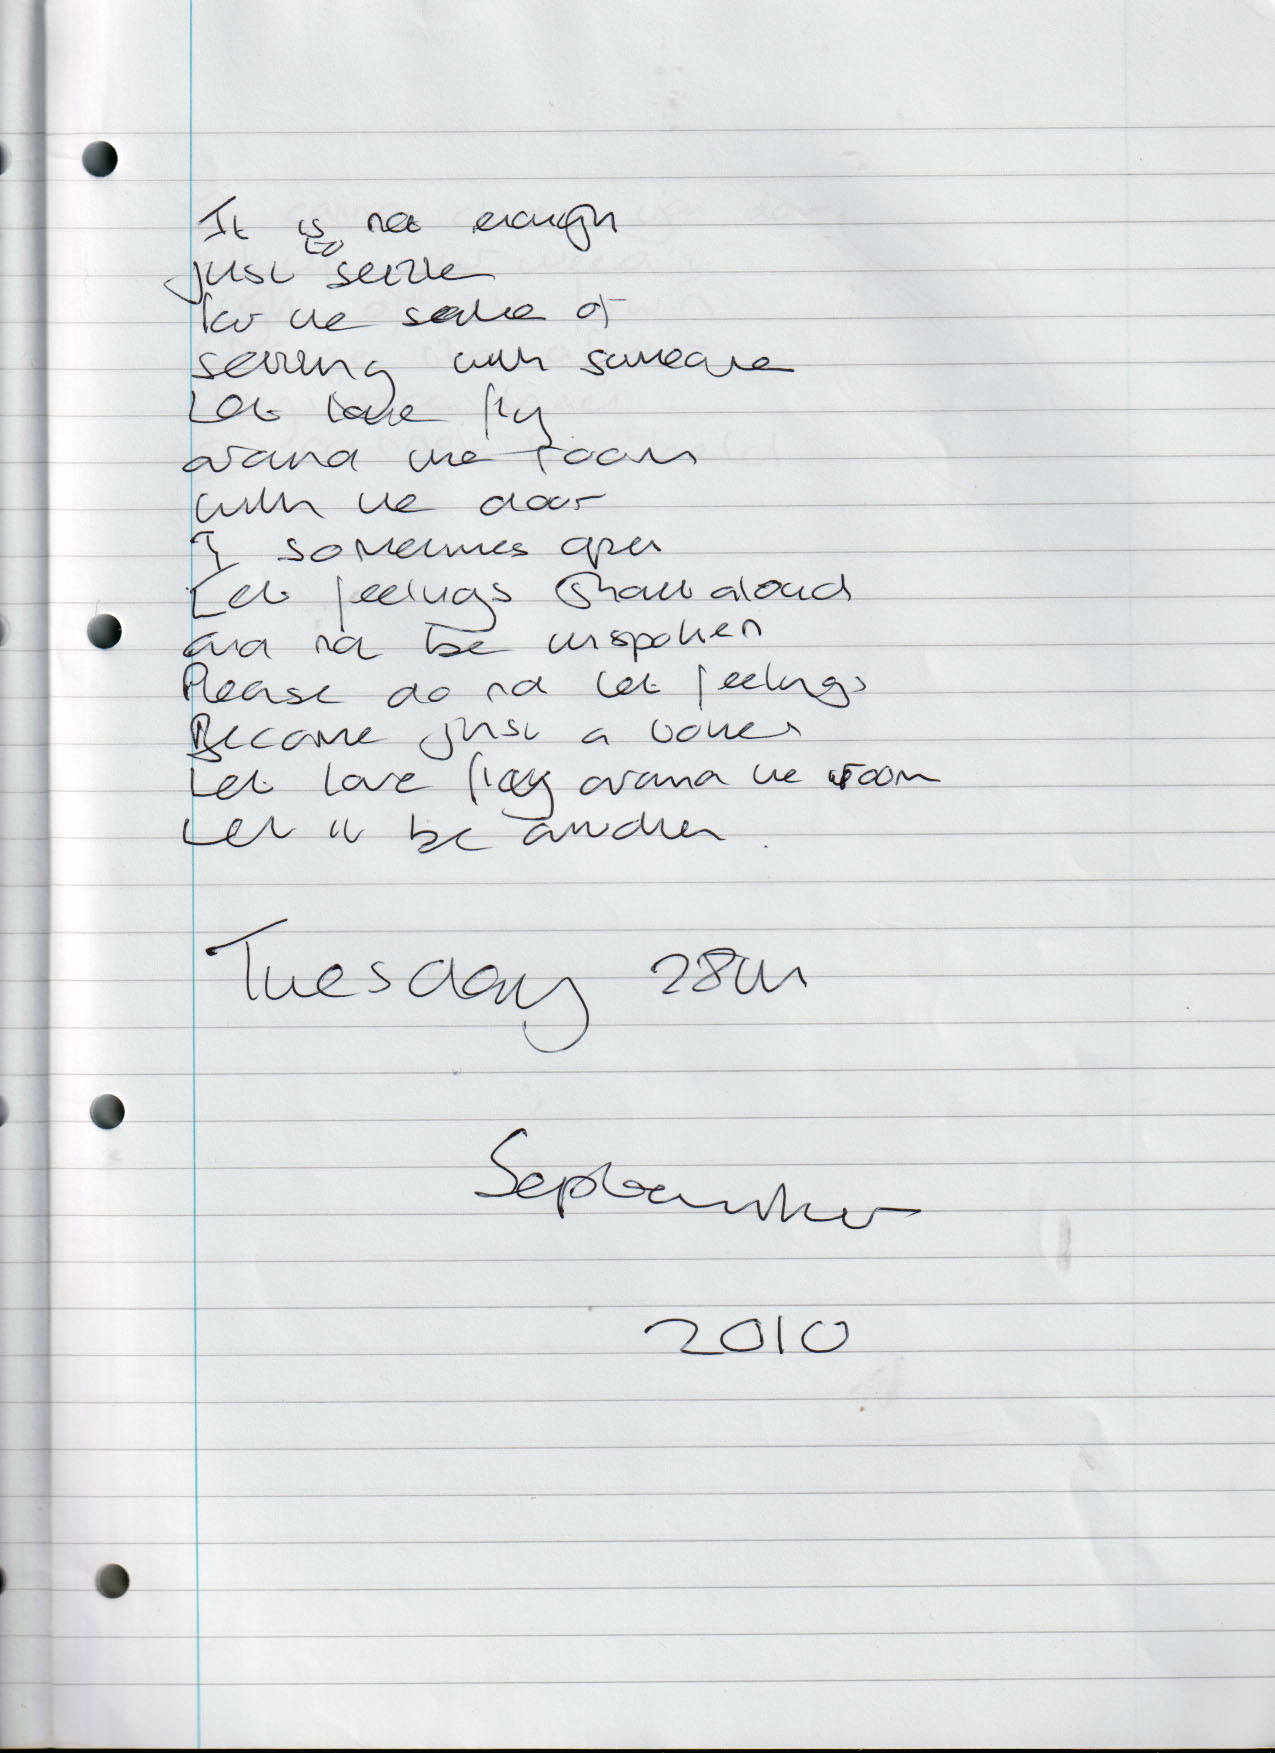 It is not enough
just to settle
for the sake of
settling with someone
Let love fly
around the room
with the door
I sometimes open
Let feelings shout aloud
and not be unspoken
Please do not let feelings
Become just a
Let love fly around the room
Let it be
Tuesday 28th
September
2010